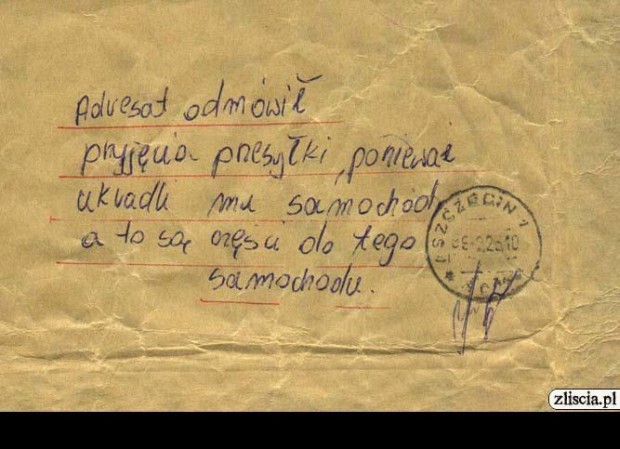 Adresat odmówił
przyjęcia przesyłki, ponieważ
ukradli mu samochód,
a to są części do tego
samochodu.
SZCZECIN 1
zliscia.pl